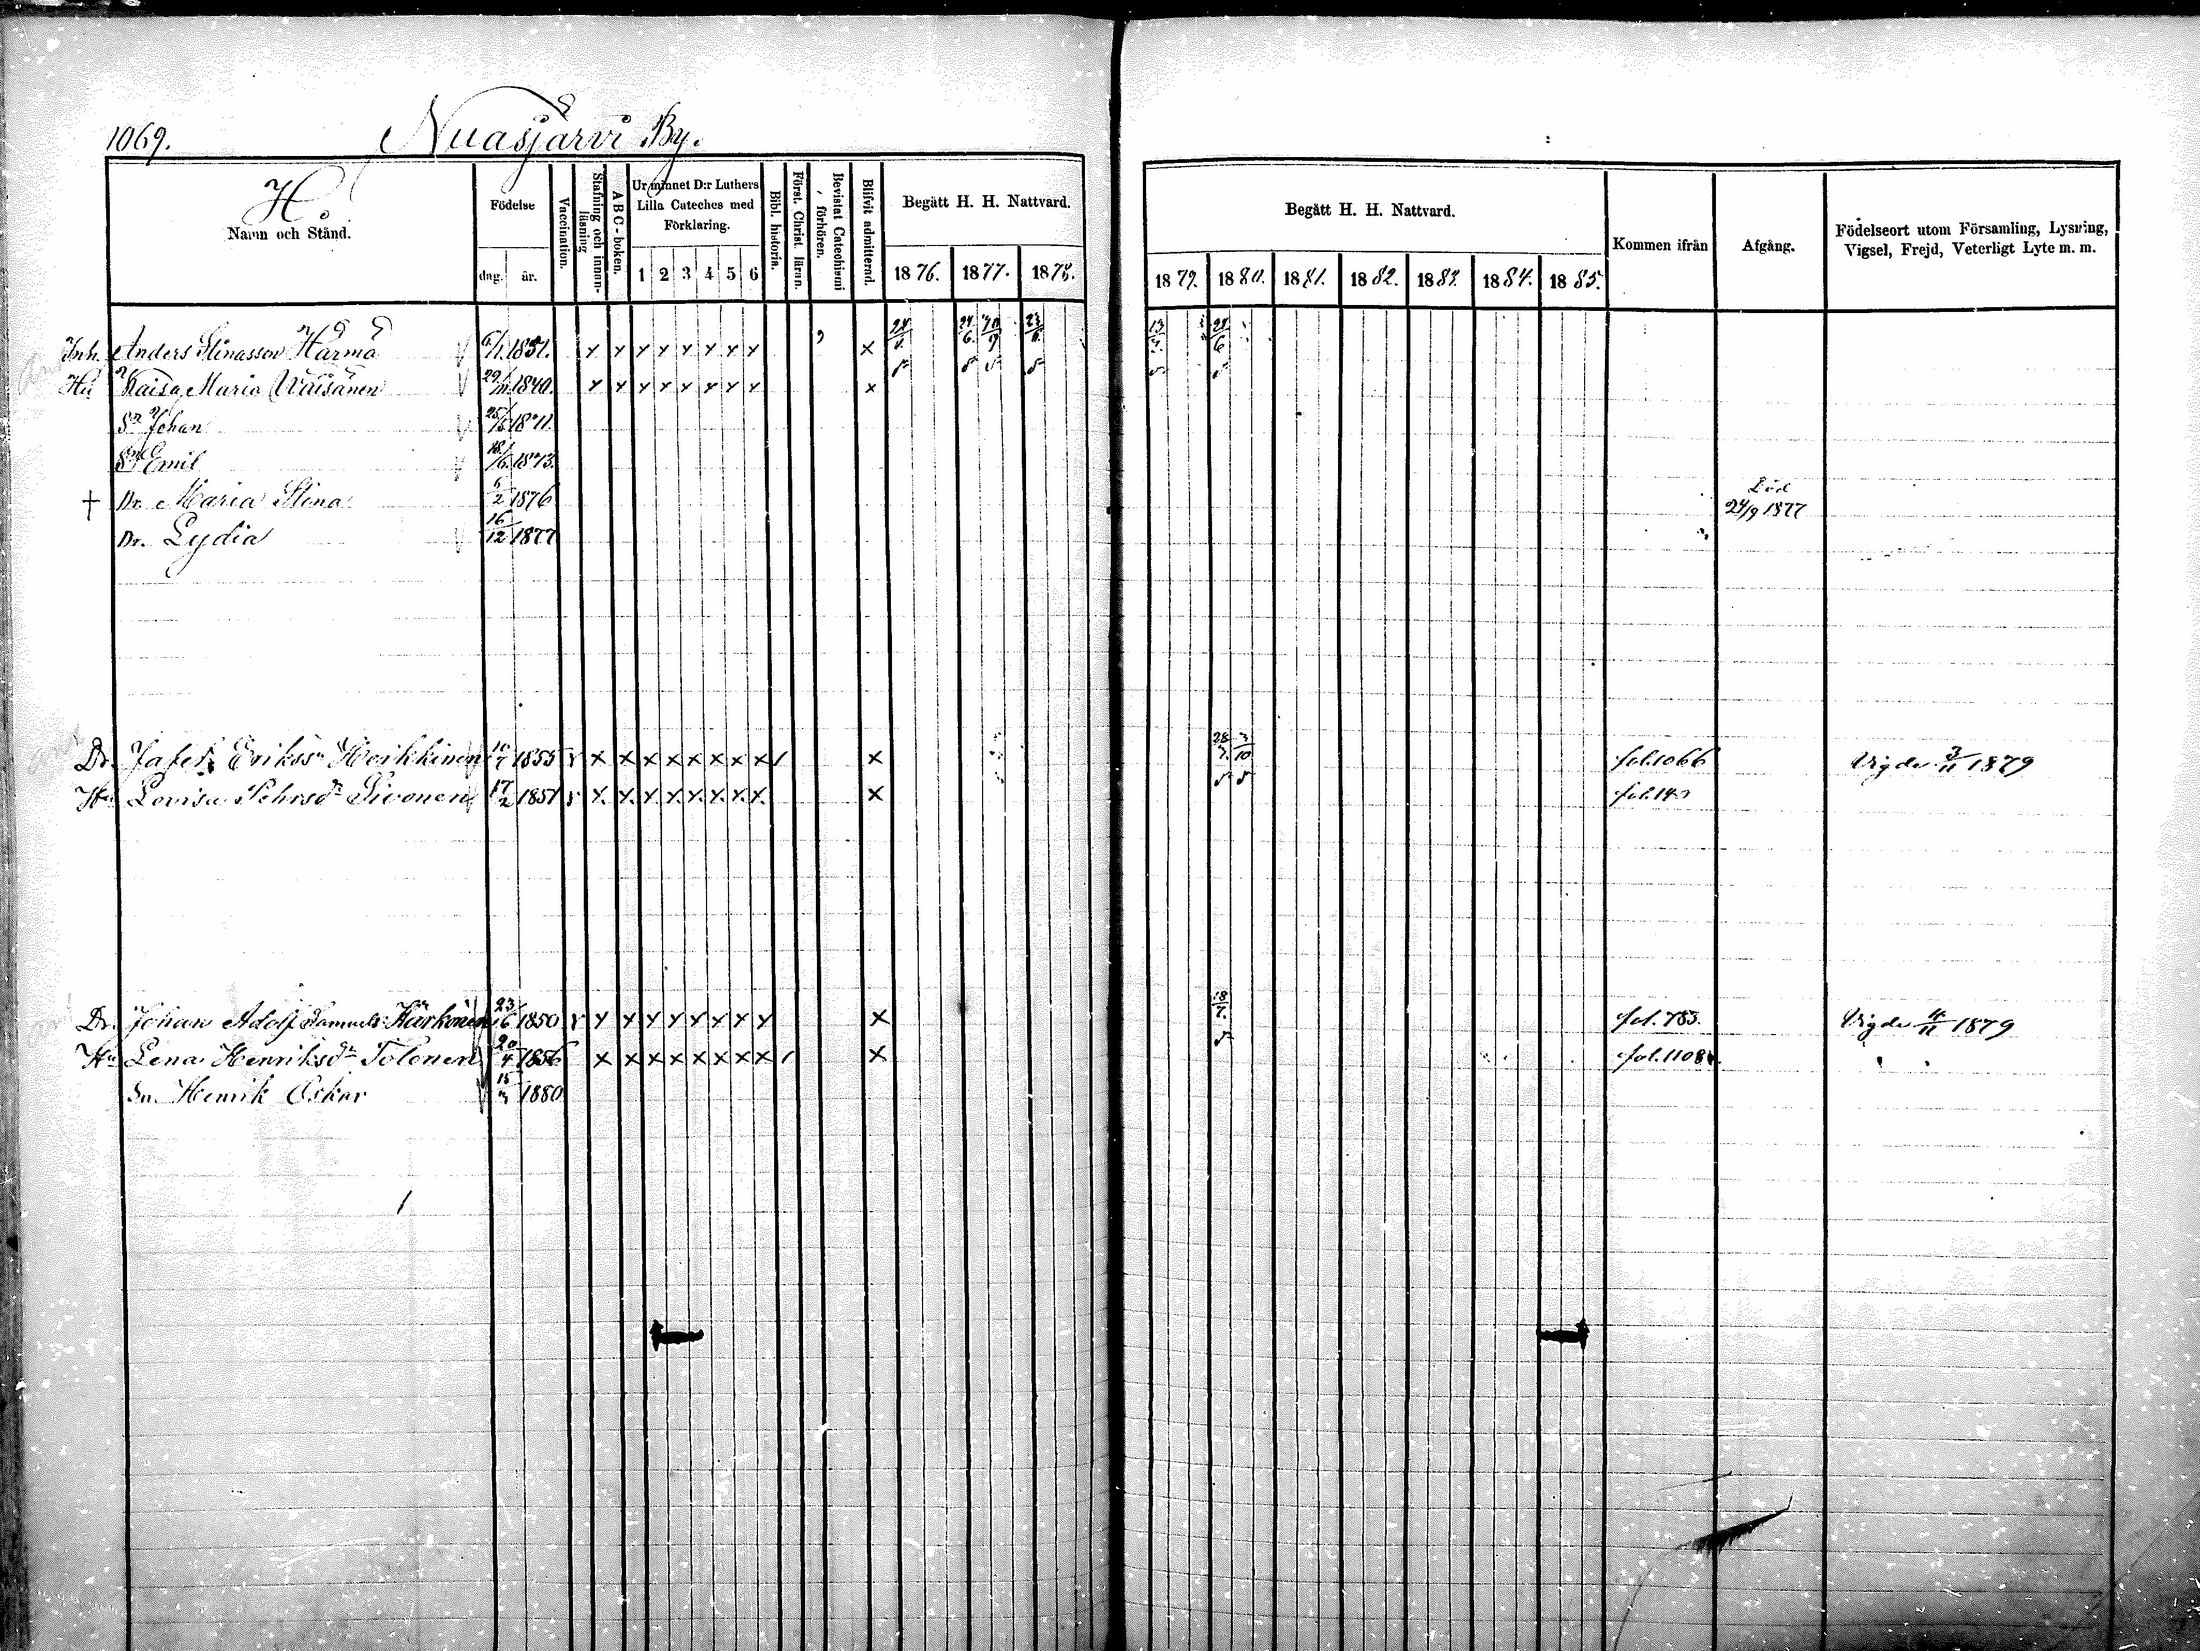 1069.
Nuasjärvi By.
H
Namn och Stånd.
Födelse
dag. år.
Vaccination.
Stafning och innan-läsning
ABC-boken.
Ur minnet D:r Luthers Lilla Cateches med Förklaring.
1 2 3 4 5 6
Bibl. historia.
Först. Christ. läran.
Bevistat Catechismi förhören.
Blifvit admitterad.
Begått H. H. Nattvard.
1876. 1877. 1878.
Begått H. H. Nattvard.
1879. 1880. 1881. 1882. 1883. 1884. 1885.
Kommen ifrån
Afgång.
Födelseort utom Församling, Lysning, Vigsel, Frejd, Veterligt Lyte m. m.
Inh. Anders Stinasson Härmä 6/1 1851.
Hu Kaisa Maria Väisänen 29/11 1840.
Sn Johan 25/5 1871.
Sn Emil 18/6 1873.
† Dr. Maria Stina 6/2 1876 Död 24/9 1877
Dr. Lydia 16/12 1877
Dr. Jafet Erikss Heikkinen 1855 28/3 3/10 fol. 1066 Vigde 3/11 1879
Hu Lovisa Pehrsdr Sivonen 17/2 1851
Dr. Johan Adolf Samuels Härkönen 23/6 1850 18/7. fol. 783. Vigde 4/11 1879
Hu Lena Henriksdr Tolonen 20/4 1856 fol. 1108
Sn. Henrik Oskar 15/3 1880